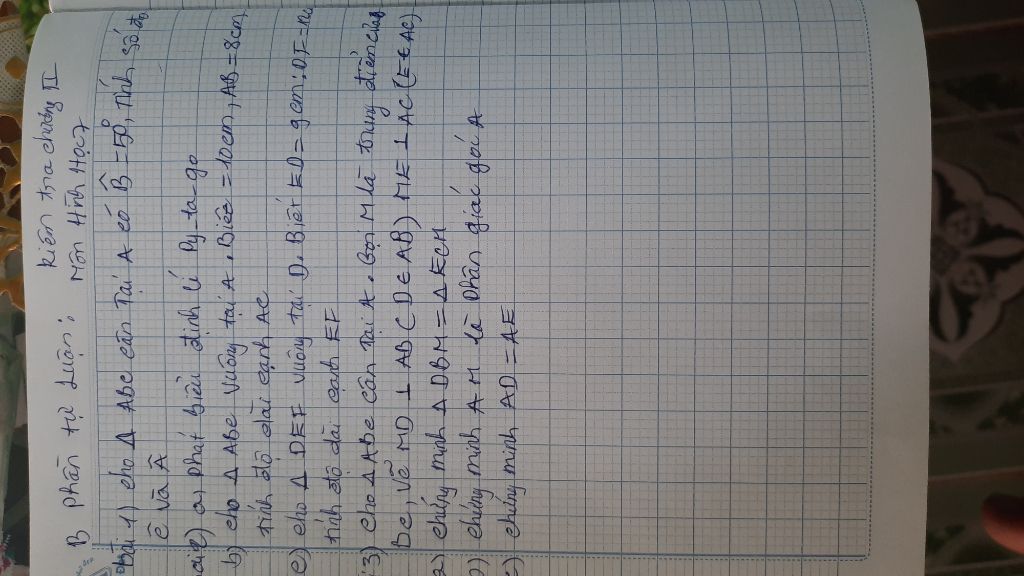 Kiểm tra chương II
B phần tự Luận: Môn Hình Học 7
Bài 1) cho Δ ABC cân tại A có B̂ = 50°, Tính số đo
Ĉ và Â
a) phát biểu định lí Py-ta-go
b) cho Δ ABC vuông tại A. Biết = 10cm, AB = 8cm
tính độ dài cạnh AC
c) cho Δ DEF vuông tại D. Biết ED = 9cm; DF =
tính độ dài cạnh EF
3) cho Δ ABC cân tại A. Gọi M là trung điểm của
BC, vẽ MD ⊥ AB (D ∈ AB) ME ⊥ AC (E ∈ AC)
a) chứng minh Δ DBM = Δ ECM
b) chứng minh AM là phân giác góc A
c) chứng minh AD = AE